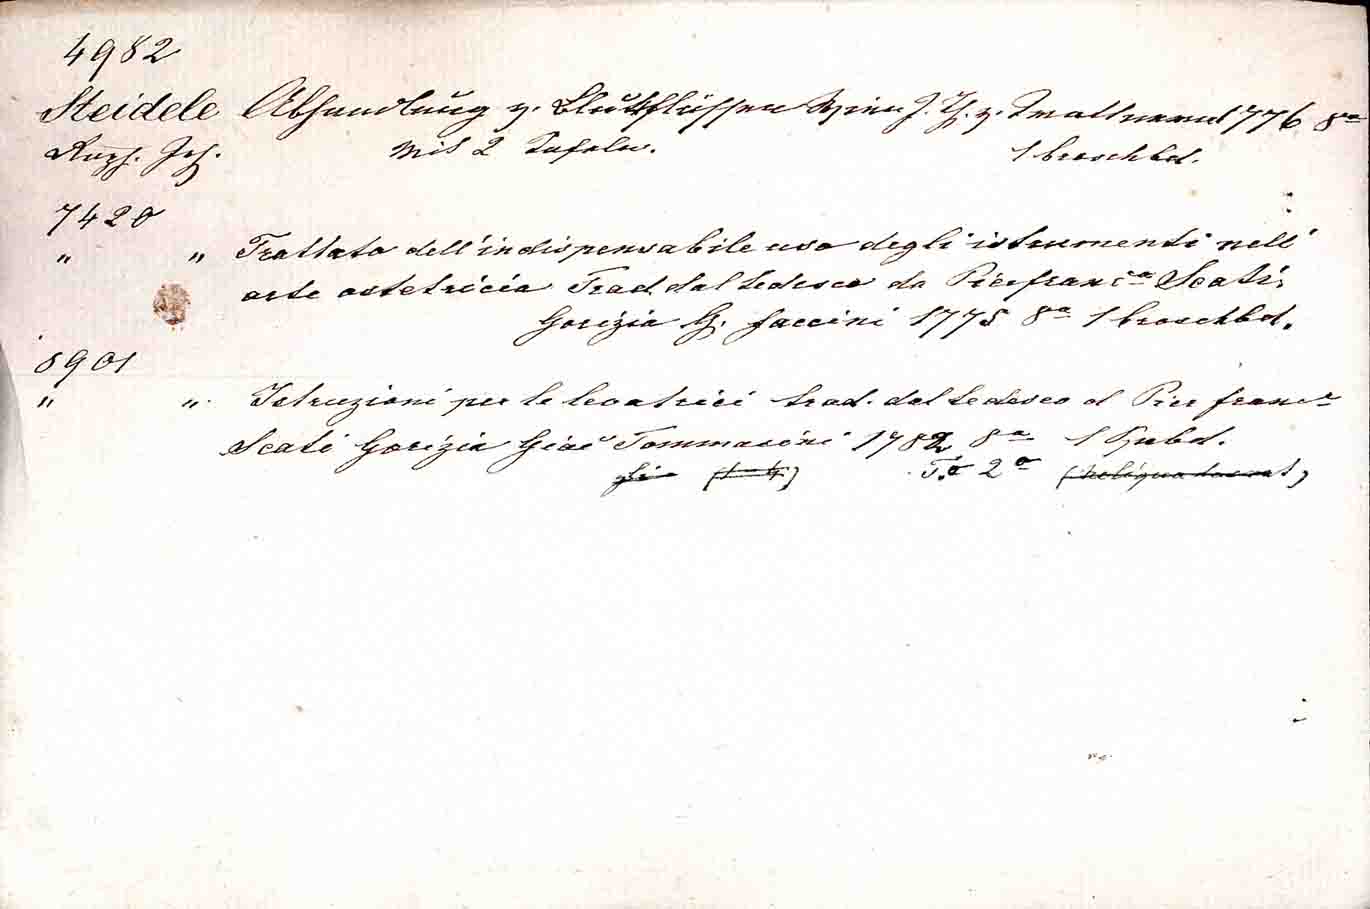 4982
Steidele Abhandlung v. Blutflüssen Wien J. Th. v. Trattnern 1776 8°
Raph. Joh. Mit 2 Tafeln. 1 broschbd.
7420
" " Trattato dell'indispensabile uso degli istrumenti nell'
arte ostetricia Trad. dal tedesco da Pierfranc° Scati,
Gorizia G. faccini 1775 8° 1 broschbd.
8901
" " Istruzioni per le levatrici trad. dal tedesco d Pier franc°
Scati Gorizia Giac° Tommasini 1782 8° 1 Hwbd.
T.° 2°